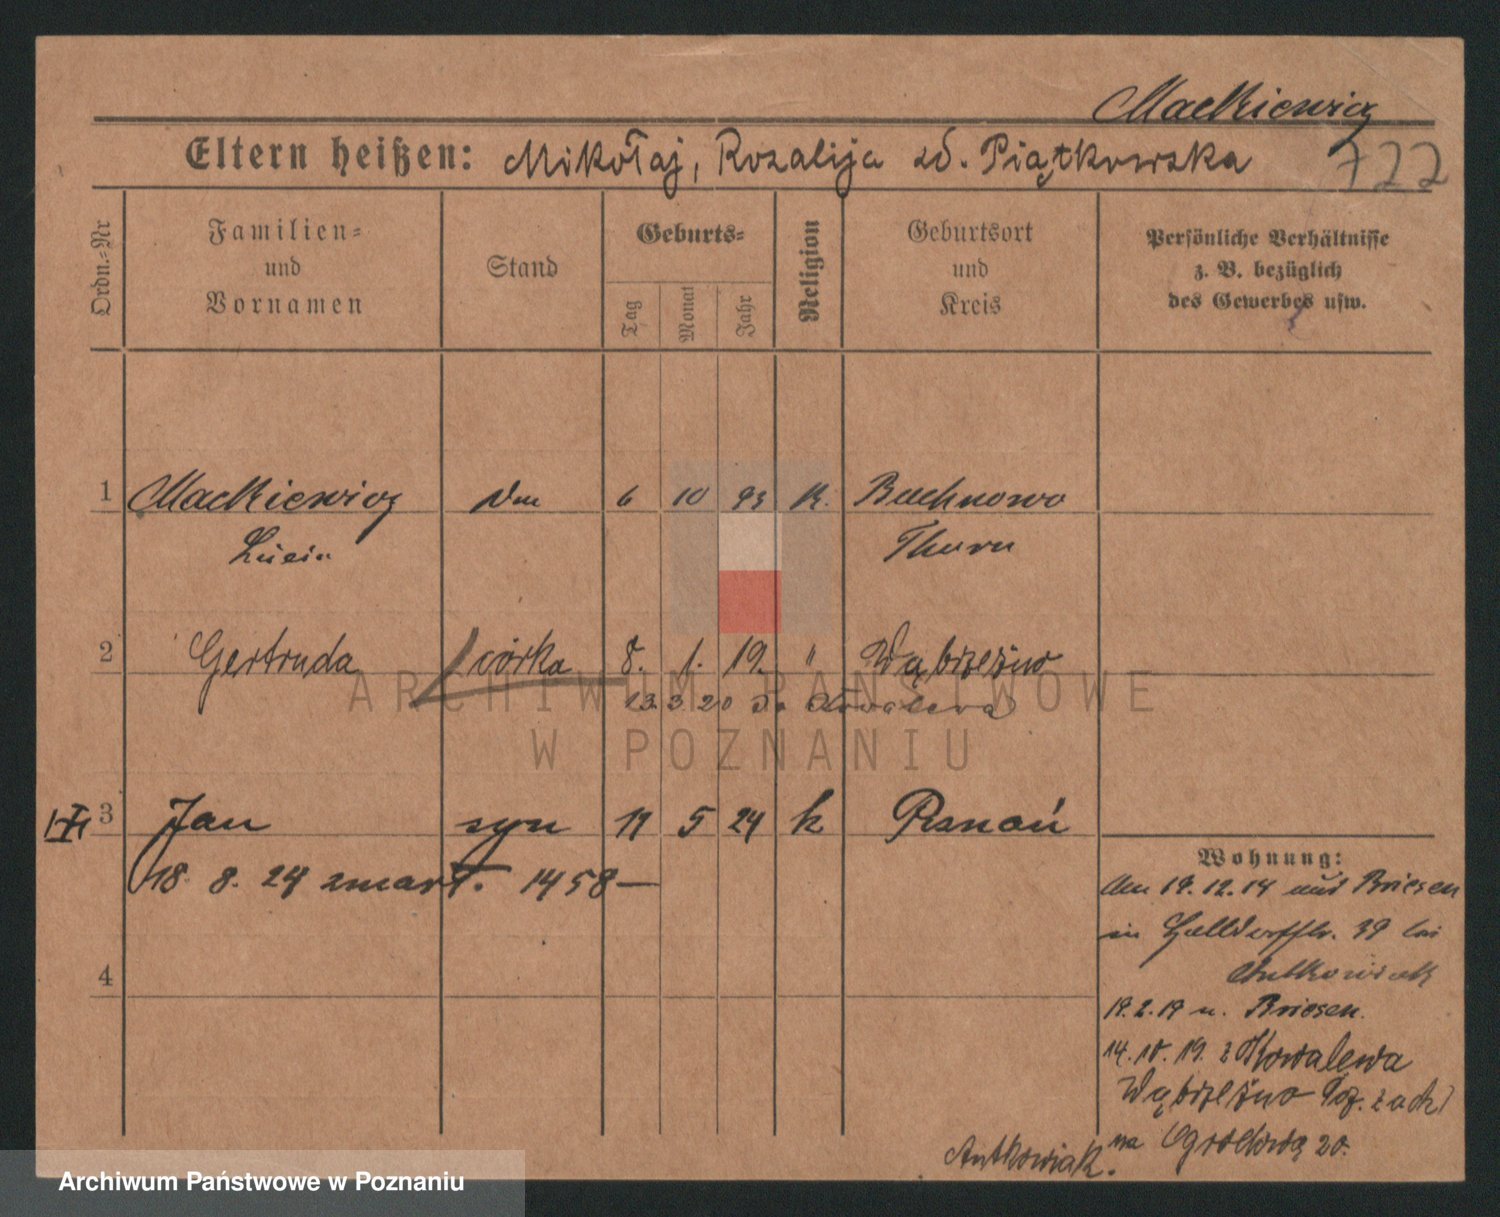 Mackiewicz
Eltern heißen: Mikołaj, Rozalija zd. Piątkowska 722
Ordn.=Nr
Familien=
und
Vornamen
Stand
Geburts=
Tag
Monat
Jahr
Religion
Geburtsort
und
Kreis
Persönliche Verhältnisse
z. B. bezüglich
des Gewerbes usw.
1 Mackiewicz 6 10 93 K. Buchnowo
Luzia Thorn
2 Gertruda córka 8. 1. 19. " Wąbrzeźno
13. 3 20 do Kowalewa
3 Jan syn 19 5 24 k Poznań
18. 8. 24 zmarł. 1458 —
4
Wohnung:
Am 19. 12. 14 aus Briesen
in Halldorffstr. 39 bei
Antkowiak
19. 2. 19 n. Briesen.
14. 10. 19. z Kowalewa
Wąbrzeźno
na Ogrodową 20.
Antkowiak.
ARCHIWUM PAŃSTWOWE
W POZNANIU
Archiwum Państwowe w Poznaniu